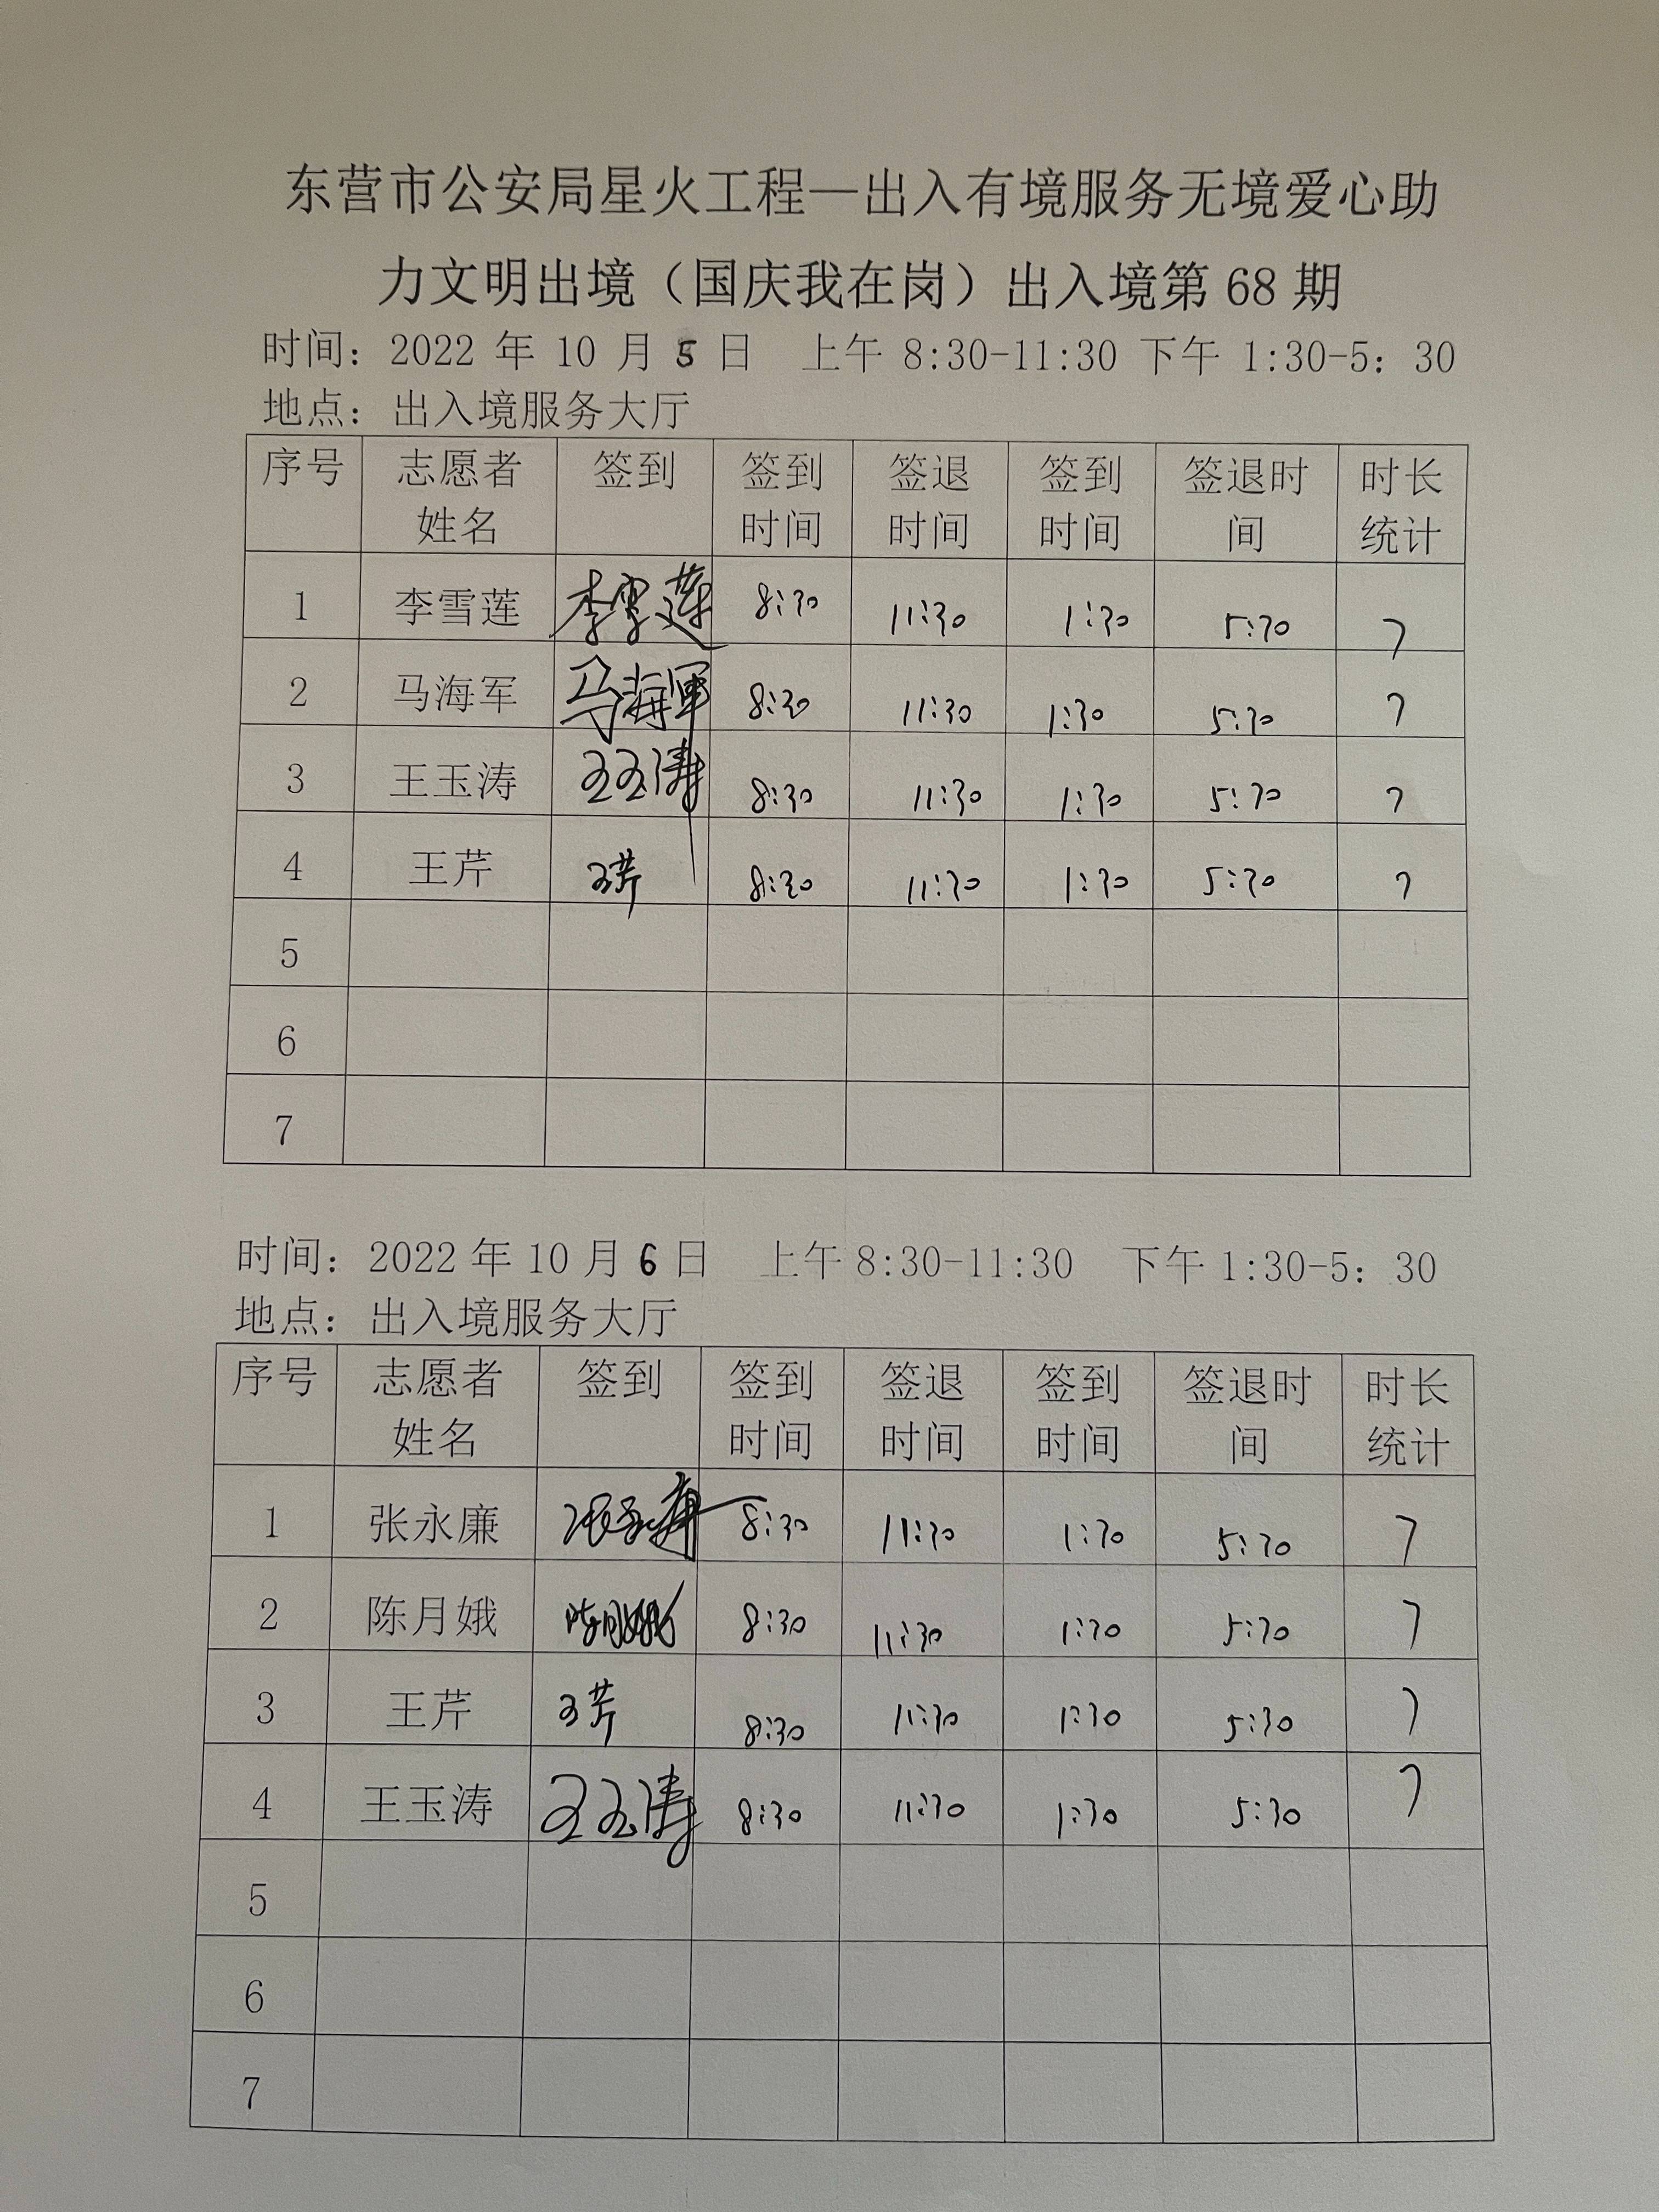 东营市公安局星火工程—出入有境服务无境爱心助
力文明出境（国庆我在岗）出入境第 68 期
时间：2022 年 10 月 5 日 上午 8:30-11:30 下午 1:30-5：30
地点：出入境服务大厅
序号 志愿者姓名 签到 签到时间 签退时间 签到时间 签退时间 时长统计
1 李雪莲 李雪莲 8:30 11:30 1:30 5:30 7
2 马海军 马海军 8:30 11:30 1:30 5:30 7
3 王玉涛 王玉涛 8:30 11:30 1:30 5:30 7
4 王芹 王芹 8:30 11:30 1:30 5:30 7
5
6
7
时间：2022 年 10 月 6 日 上午 8:30-11:30 下午 1:30-5：30
地点：出入境服务大厅
序号 志愿者姓名 签到 签到时间 签退时间 签到时间 签退时间 时长统计
1 张永廉 张永廉 8:30 11:30 1:30 5:30 7
2 陈月娥 陈月娥 8:30 11:30 1:30 5:30 7
3 王芹 王芹 8:30 11:30 1:30 5:30 7
4 王玉涛 王玉涛 8:30 11:30 1:30 5:30 7
5
6
7